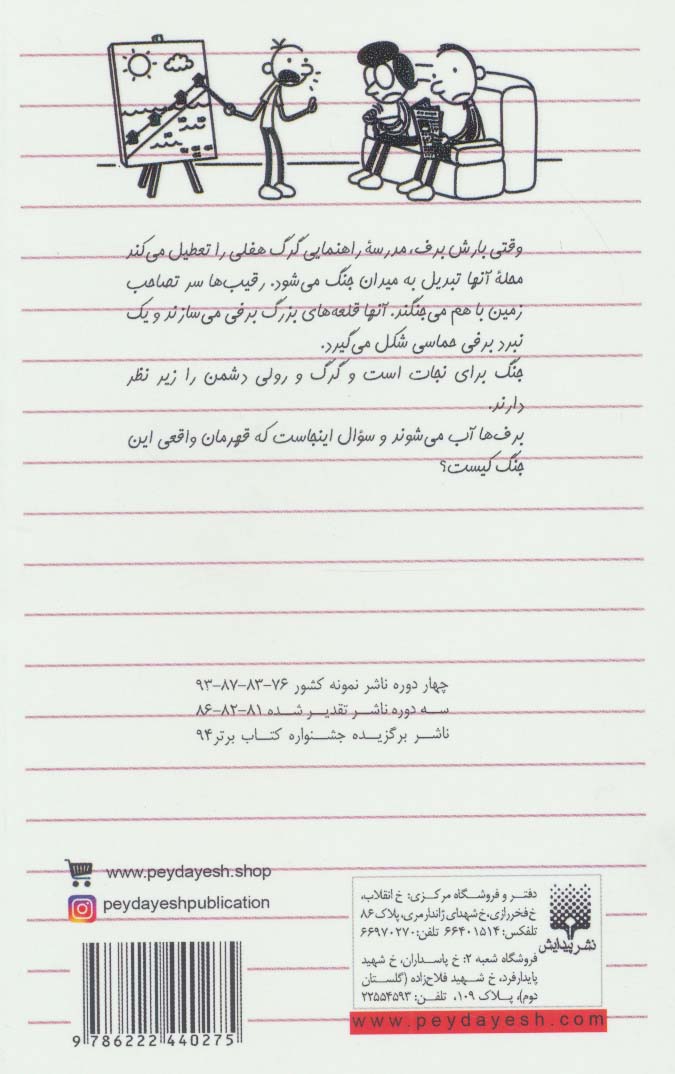 وقتی بارش برف، مدرسهٔ راهنمایی گرگ هفلی را تعطیل می‌کند
محلهٔ آنها تبدیل به میدان جنگ می‌شود. رقیب‌ها سر تصاحب
زمین با هم می‌جنگند. آنها قلعه‌های بزرگ برفی می‌سازند و یک
نبرد برفی حماسی شکل می‌گیرد.
جنگ برای نجات است و گرگ و رولی دشمن را زیر نظر
دارند.
برف‌ها آب می‌شوند و سؤال اینجاست که قهرمان واقعی این
جنگ کیست؟
چهار دوره ناشر نمونه کشور ۷۶-۸۳-۸۷-۹۳
سه دوره ناشر تقدیر شده ۸۱-۸۲-۸۶
ناشر برگزیده جشنواره کتاب برتر ۹۴
www.peydayesh.shop
peydayeshpublication
دفتر و فروشگاه مرکزی: خ انقلاب،
خ فخررازی، خ شهدای ژاندارمری، پلاک ۸۶
تلفکس: ۶۶۴۰۱۵۱۴ تلفن: ۶۶۹۷۰۲۷۰
فروشگاه شعبه ۲: خ پاسداران، خ شهید
پایدارفرد، خ شهید فلاح‌زاده (گلستان
دوم)، پلاک ۱۰۹، تلفن: ۲۲۵۵۴۵۹۳
نشر پیدایش
www.peydayesh.com
9 786222 440275